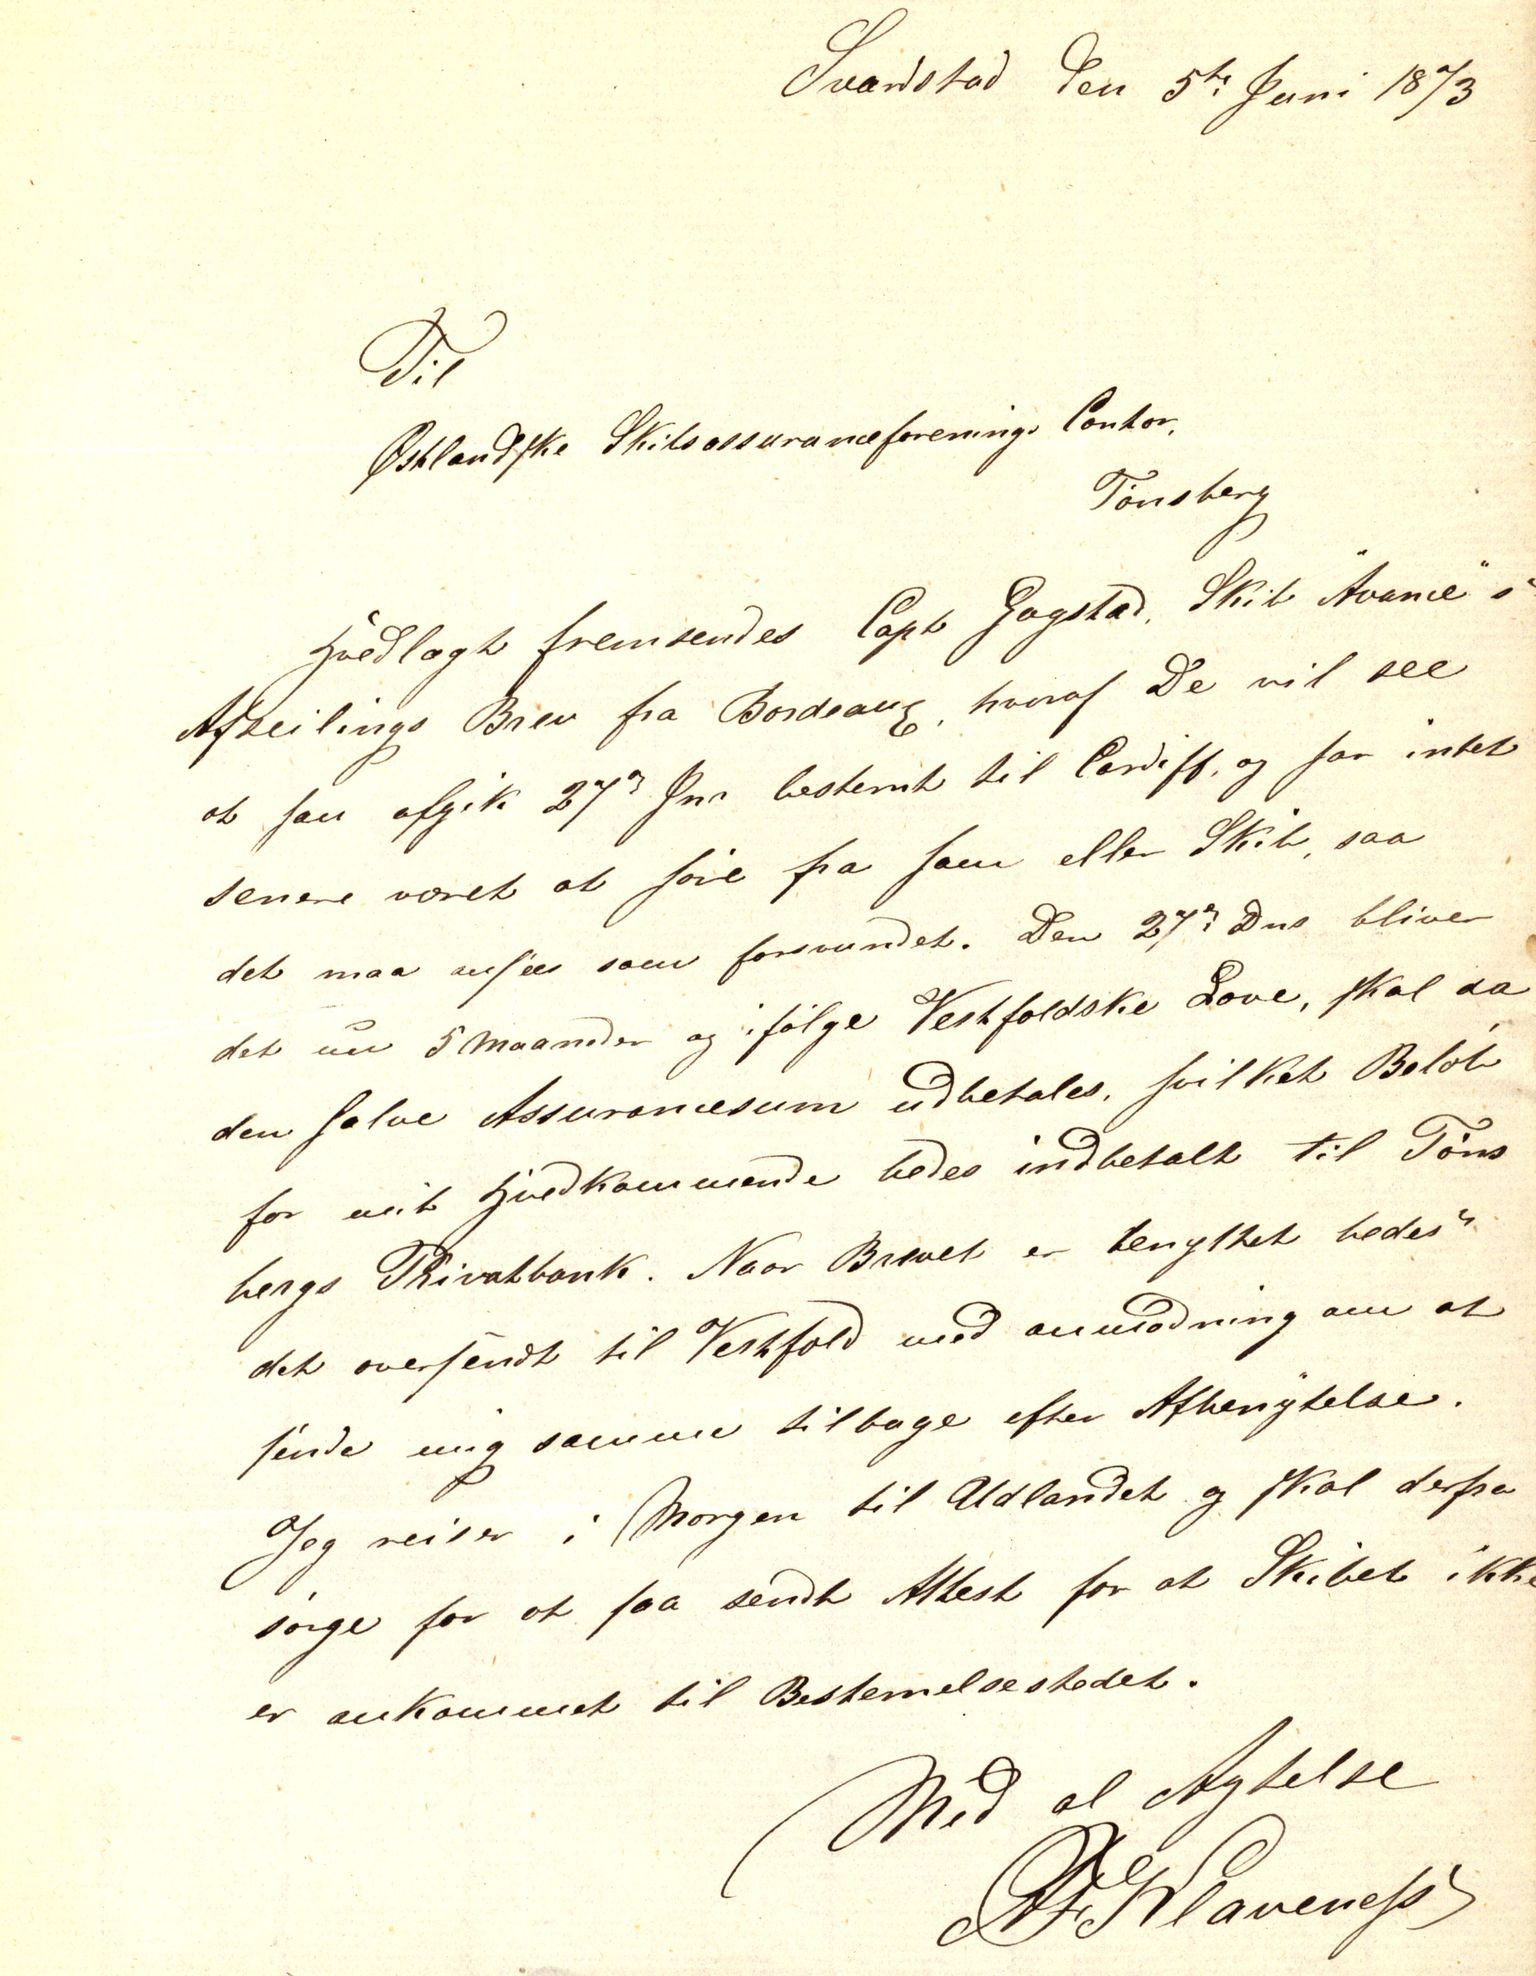 Svarstad den 5te Juni 1873
Til
Østlandske Skibsassuranceforenings Contor.
Tönsberg
Hvedlagt fremsendes Capt Gogstad, Skib "Avance"s
Afseilings Brev fra Bordeaux, hvoraf De vil see
at han afgik 27de Jnr bestemt til Cardiff, og har intet
senere været at høre fra ham eller Skib, saa
det maa ansees som forsvundet. Den 27de Dns bliver
det nu 5 Maaneder og ifølge Vestfoldske Love, skal da
den halve Assurancesum udbetales, hvilket Beløb
for mit Hvedkommende bedes indbetalt til Töns
bergs Privatbank. Naar Brevet er benyttet bedes
det oversendt til Vestfold med anmodning om at
sende mig samme tilbage efter Afbenyttelse.
Jeg reiser i Morgen til Udlandet og skal derfra
sørge for at faa sendt Attest for at Skibet ikke
er ankommet til Bestemelsesstedet.
Med al Agtelse
A F Klaveness